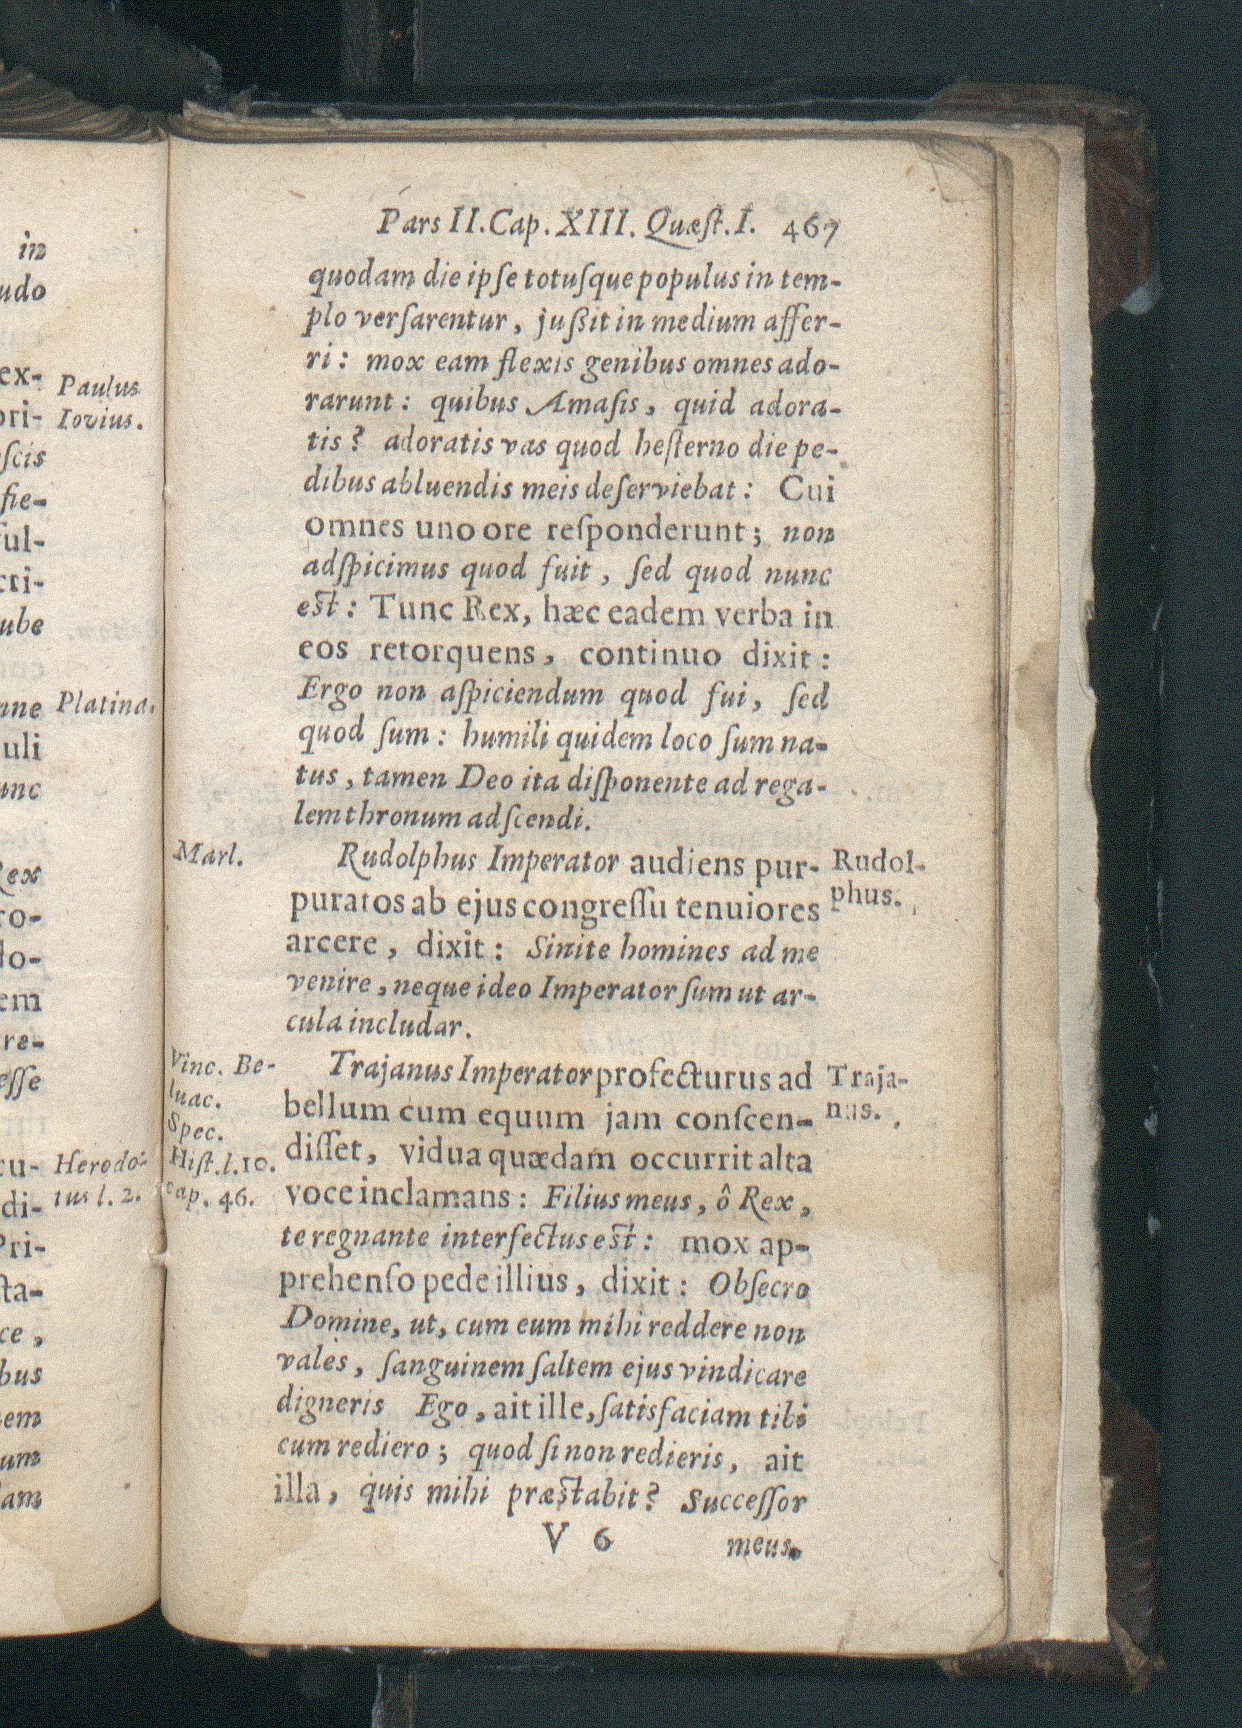 in
udo
ex-
ori-
ſcis
fie-
ful-
cri-
ube
nne
uli
unc
ex
ro-
lo-
em
re-
eſſe
cu-
di-
Pri-
ſta-
ce,
bus
em
um
lam
Paulus
Iovius.
Platina.
Herodo-
tus l. 2.
Pars II. Cap. XIII. Quæſt. I. 467
quodam die ipſe totuſque populus in tem-
plo verſarentur, juſsit in medium affer-
ri: mox eam flexis genibus omnes ado-
rarunt: quibus Amaſis, quid adora-
tis? adoratis vas quod heſterno die pe-
dibus abluendis meis deſerviebat: Cui
omnes uno ore reſponderunt; non
adſpicimus quod fuit, ſed quod nunc
eſt: Tunc Rex, hæc eadem verba in
eos retorquens, continuo dixit:
Ergo non aſpiciendum quod fui, ſed
quod ſum: humili quidem loco ſum na-
tus, tamen Deo ita diſponente ad rega-
lem thronum adſcendi.
Marl.
Rudolphus Imperator audiens pur-
Rudol-
phus.
puratos ab ejus congreſſu tenuiores
arcere, dixit: Sinite homines ad me
venire, neque ideo Imperator ſum ut ar-
cula includar.
Vinc. Be-
luac.
Spec.
Hiſt. l. 10.
cap. 46.
Trajanus Imperator profecturus ad
Traja-
nus.
bellum cum equum jam conſcen-
diſſet, vidua quædam occurrit alta
voce inclamans: Filius meus, ô Rex,
te regnante interfectus eſt: mox ap-
prehenſo pede illius, dixit: Obſecro
Domine, ut, cum eum mihi reddere non
vales, ſanguinem ſaltem ejus vindicare
digneris Ego, ait ille, ſatisfaciam tibi
cum rediero; quod ſi non redieris, ait
illa, quis mihi præſtabit? Succeſſor
V 6
meus.